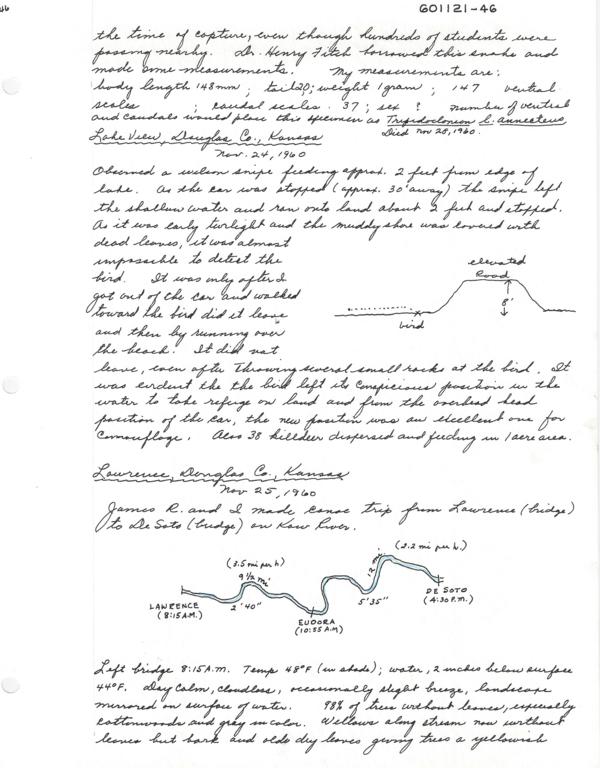 46
GO1121-46
the time of capture, even though hundreds of students were
passing nearby. Dr. Henry Fitch borrowed this snake and
made some measurements. My measurements are:
body length 148mm; tail 20; weight 1 gram; 147 ventral
scales ; caudal scales 37; sex ? number of ventral
and caudals would place this specimen as Tropidoclonion l. annectens
Died Nov 28, 1960.
Lake View, Douglas Co., Kansas
Nov. 24, 1960
Observed a wilson snipe feeding approx. 2 feet from edge of
lake. As the car was stopped (approx. 30' away) the snipe left
the shallow water and ran onto land about 2 feet and stopped.
As it was early twilight and the muddy shore was covered with
dead leaves, it was almost
impossible to detect the
bird. It was only after I
got out of the car and walked
toward the bird did it leave
and then by running over
the beach. It did not
elevated
Road
8'
bird
leave, even after throwing several small rocks at the bird. It
was evident the the bird left its conspicious position in the
water to take refuge on land and from the overhead
position of the car, the new position was an excellent one for
camouflage. Also 38 killdeer dispersed and feeding in 1 acre area.
Lawrence, Douglas Co., Kansas
Nov 25, 1960
James R. and I made canoe trip from Lawrence (bridge)
to De Soto (bridge) on Kaw River.
(3.5 mi per h)
9 1/2 mi
(2.2 mi per h.)
12 mi
LAWRENCE
(8:15 A.M.)
2' 40"
EUDORA
(10:55 A.M)
5' 35"
DE SOTO
(4:30 P.M.)
Left bridge 8:15 A.M. Temp 48°F (in shade); water, 2 inches below surface
44°F. Day calm, cloudless, occasionally slight breeze, landscape
mirrored on surface of water. 98% of trees without leaves, especially
cottonwoods and gray in color. Willows along stream now without
leaves but bark and olds dry leaves giving trees a yellowish